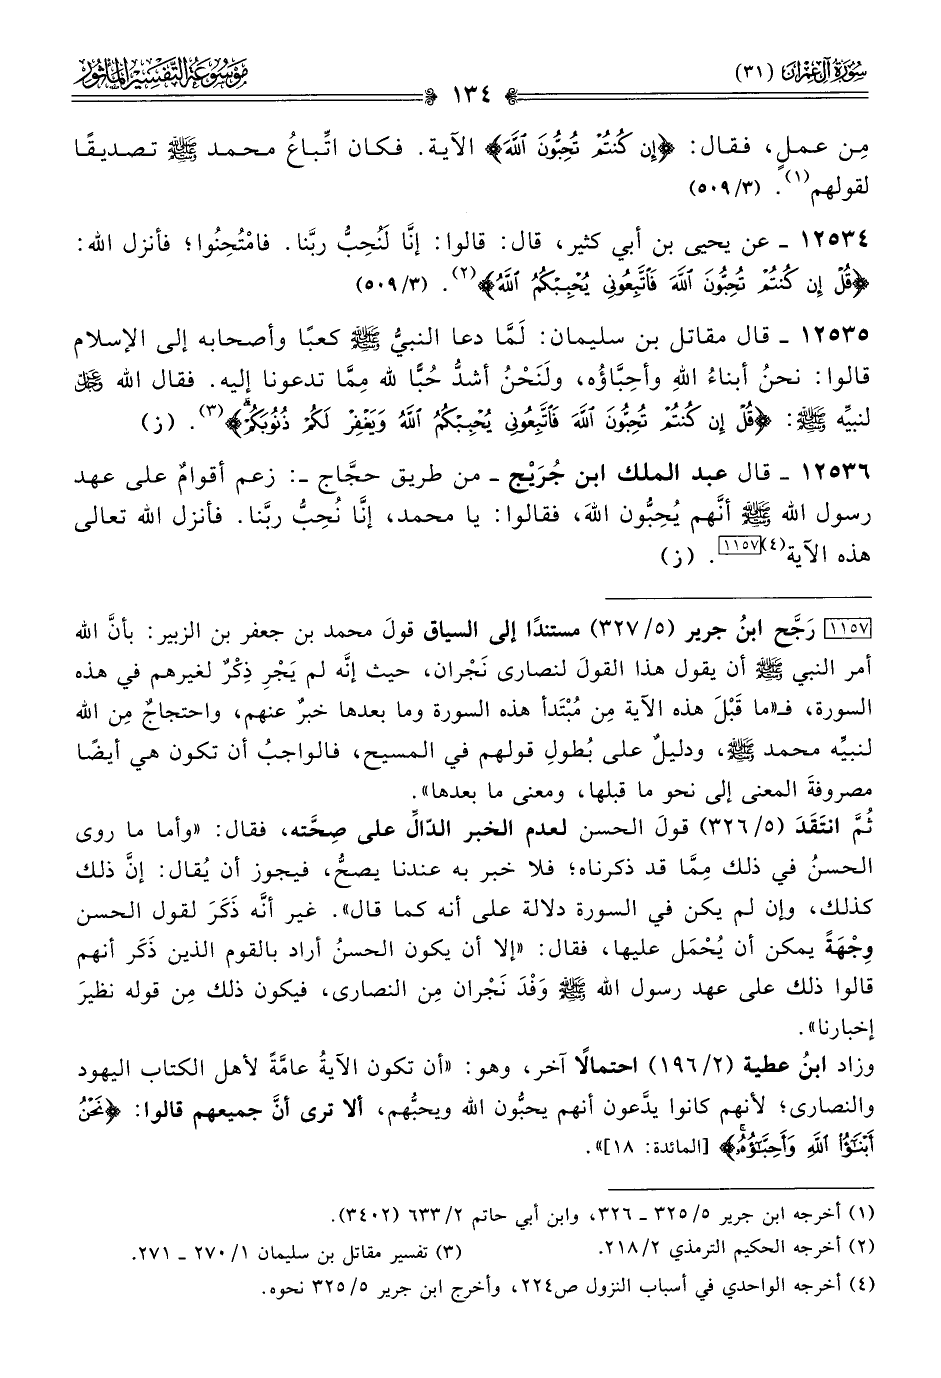 سُورَةُ آلِ عِمْرَان (٣١)
١٣٤
مَوْسُوعَة التَّفْسِير المَأْثُور
مِن عملٍ، فقال: ﴿إِن كُنتُمْ تُحِبُّونَ ٱللَّهَ﴾ الآية. فكان اتِّباعُ محمد ﷺ تصديقًا
لقولهم(١). (٣/ ٥٠٩)
١٢٥٣٤ ـ عن يحيى بن أبي كثير، قال: قالوا: إنَّا لَنُحِبُّ ربَّنا. فامْتُحِنُوا؛ فأنزل الله:
﴿قُلْ إِن كُنتُمْ تُحِبُّونَ ٱللَّهَ فَٱتَّبِعُونِى يُحْبِبْكُمُ ٱللَّهُ﴾(٢). (٣/ ٥٠٩)
١٢٥٣٥ ـ قال مقاتل بن سليمان: لَمَّا دعا النبيُّ ﷺ كعبًا وأصحابه إلى الإسلام
قالوا: نحنُ أبناءُ اللهِ وأحِبَّاؤُه، ولَنَحْنُ أشدُّ حُبًّا لله مِمَّا تدعونا إليه. فقال الله ﷻ
لنبيِّه ﷺ: ﴿قُلْ إِن كُنتُمْ تُحِبُّونَ ٱللَّهَ فَٱتَّبِعُونِى يُحْبِبْكُمُ ٱللَّهُ وَيَغْفِرْ لَكُمْ ذُنُوبَكُمْۗ﴾(٣). (ز)
١٢٥٣٦ ـ قال عبد الملك ابن جُرَيْج ـ من طريق حجَّاج ـ: زعم أقوامٌ على عهد
رسول الله ﷺ أنَّهم يُحِبُّون اللهَ، فقالوا: يا محمد، إنَّا نُحِبُّ ربَّنا. فأنزل الله تعالى
هذه الآية(٤)[١١٥٧]. (ز)
[١١٥٧] رَجَّح ابنُ جرير (٥/ ٣٢٧) مستندًا إلى السياق قولَ محمد بن جعفر بن الزبير: بأنَّ الله
أمر النبي ﷺ أن يقول هذا القولَ لنصارى نَجْران، حيث إنَّه لم يَجْرِ ذِكْرٌ لغيرهم في هذه
السورة، فـ«ما قَبْلَ هذه الآية مِن مُبْتَدأ هذه السورة وما بعدها خبرٌ عنهم، واحتجاجٌ مِن الله
لنبيِّه محمد ﷺ، ودليلٌ على بُطولِ قولهم في المسيح، فالواجبُ أن تكون هي أيضًا
مصروفةَ المعنى إلى نحو ما قبلها، ومعنى ما بعدها».
ثُمَّ انتَقَدَ (٥/ ٣٢٦) قولَ الحسن لعدم الخبر الدّالِّ على صِحَّته، فقال: «وأما ما روى
الحسنُ في ذلك مِمَّا قد ذكرناه؛ فلا خبر به عندنا يصحُّ، فيجوز أن يُقال: إنَّ ذلك
كذلك، وإن لم يكن في السورة دلالة على أنه كما قال». غير أنَّه ذَكَرَ لقول الحسن
وِجْهَةً يمكن أن يُحْمَل عليها، فقال: «إلا أن يكون الحسنُ أراد بالقوم الذين ذَكَر أنهم
قالوا ذلك على عهد رسول الله ﷺ وَفْدَ نَجْران مِن النصارى، فيكون ذلك مِن قوله نظيرَ
إخبارنا».
وزاد ابنُ عطية (٢/ ١٩٦) احتمالًا آخر، وهو: «أن تكون الآيةُ عامَّةً لأهل الكتاب اليهود
والنصارى؛ لأنهم كانوا يدَّعون أنهم يحبُّون الله ويحبُّهم، ألا ترى أنَّ جميعهم قالوا: ﴿نَحْنُ
أَبْنَـٰٓؤُا۟ ٱللَّهِ وَأَحِبَّـٰٓؤُهُۥۚ﴾ [المائدة: ١٨]».
(١) أخرجه ابن جرير ٥/ ٣٢٥ ـ ٣٢٦، وابن أبي حاتم ٢/ ٦٣٣ (٣٤٠٢).
(٢) أخرجه الحكيم الترمذي ٢/ ٢١٨. (٣) تفسير مقاتل بن سليمان ١/ ٢٧٠ ـ ٢٧١.
(٤) أخرجه الواحدي في أسباب النزول ص٢٢٤، وأخرج ابن جرير ٥/ ٣٢٥ نحوه.